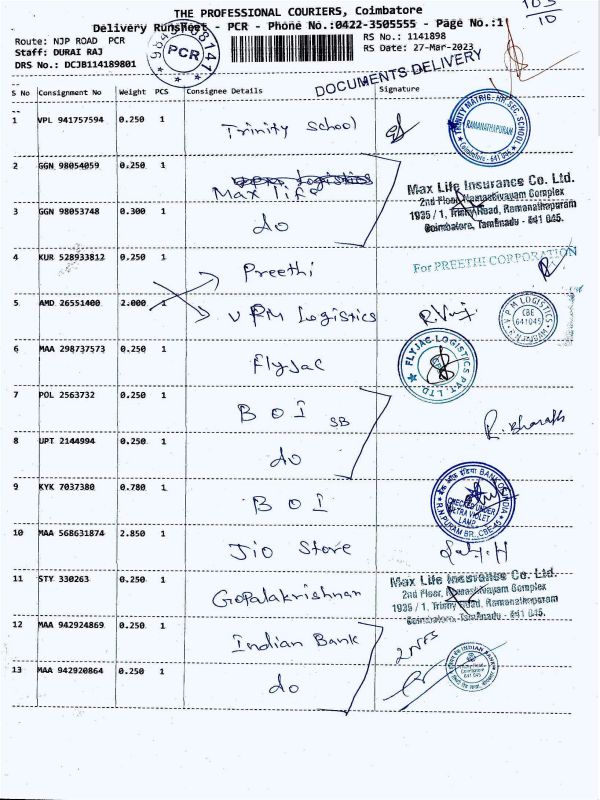 THE PROFESSIONAL COURIERS, Coimbatore
Delivery Runsheet - PCR - Phone No.:0422-3505555 - Page No.:1
103/10
Route: NJP ROAD PCR
Staff: DURAI RAJ
DRS No.: DCJB114189801
PCR
RS No.: 1141898
RS Date: 27-Mar-2023
DOCUMENTS DELIVERY
S No Consignment No Weight PCS Consignee Details Signature
1 VPL 941757594 0.250 1 Trinity School
TRINITY MATRIC. HR. SEC. SCHOOL
RAMANATHAPURAM
Coimbatore - 641 045
2 GGN 98054059 0.250 1 Max life
Max Life Insurance Co. Ltd.
2nd Floor, Namashivayam Complex
1935 / 1, Trichy Road, Ramanathapuram
Coimbatore, Tamilnadu - 641 045.
3 GGN 98053748 0.300 1 do
4 KUR 528933812 0.250 1 Preethi
For PREETHI CORPORATION
5 AMD 26551400 2.000 1 VPM Logistics
VPM LOGISTICS
CBE
641045
6 MAA 298737573 0.250 1 Flyjac
FLYJAC LOGISTICS PVT. LTD
7 POL 2563732 0.250 1 BOI SB
R. Bharath
8 UPT 2144994 0.250 1 do
9 KYK 7037380 0.780 1 BOI
बैंक ऑफ इंडिया BANK OF INDIA
CHECKED UNDER
ULTRA VIOLET
LAMP
R.N.PURAM BR., CBE-45
10 MAA 568631874 2.850 1 Jio Store
11 STY 330263 0.250 1 Gopalakrishnan
Max Life Insurance Co. Ltd.
2nd Floor, Namashivayam Complex
1935 / 1, Trichy Road, Ramanathapuram
Coimbatore, Tamilnadu - 641 045.
12 MAA 942924869 0.250 1 Indian Bank
INDIAN BANK
13 MAA 942920864 0.250 1 do